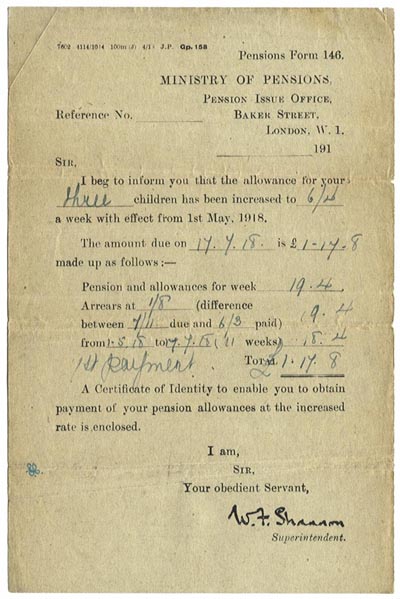 7802 4114/1014 100m (3) 4/18 J.P. Gp. 158
Pensions Form 146.
MINISTRY OF PENSIONS,
PENSION ISSUE OFFICE,
Reference No. BAKER STREET,
LONDON, W. 1.
191
SIR,
I beg to inform you that the allowance for your
three children has been increased to 6/4
a week with effect from 1st May, 1918.
The amount due on 17.7.18. is £1-17-8
made up as follows:—
Pension and allowances for week 19.4.
Arrears at 1/8 (difference
between 7/11 due and 6/3 paid) 19.4
from 1.5.18 to 17.7.18 (11 weeks) 18.4
1st Payment. Total £1.17.8
A Certificate of Identity to enable you to obtain
payment of your pension allowances at the increased
rate is enclosed.
I am,
SIR,
Your obedient Servant,
W.F. Shannon
Superintendent.